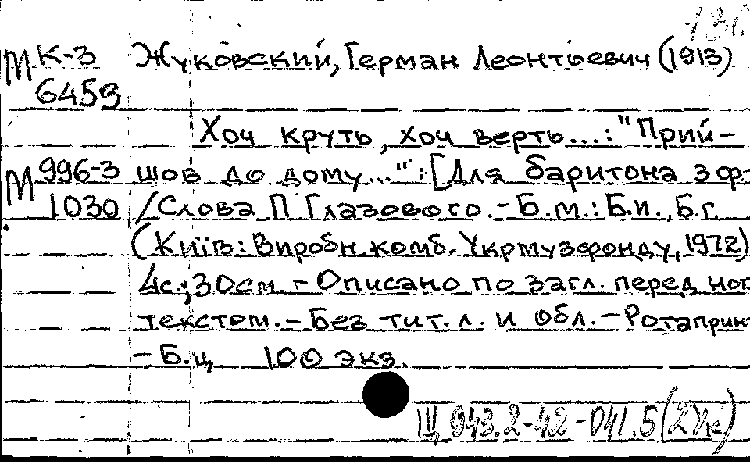 М К-3 Жуковский, Герман Леонтьевич (1913)
6453
Хоч круть, хоч верть...: "Прий-
М 996-3 шов до дому...": [Для баритона з ф-
1030 /Слова П Глазового.-Б.м.: Б.и., Б.г.
(Київ: Виробн.комб. Укрмузфонду, 1972)
4с.; 30см - Описано по загл. перед нот
текстом. - Без тит. л. и обл. - Ротапринт
- Б.ц 100 экз.
Щ 943.2-42-041.5